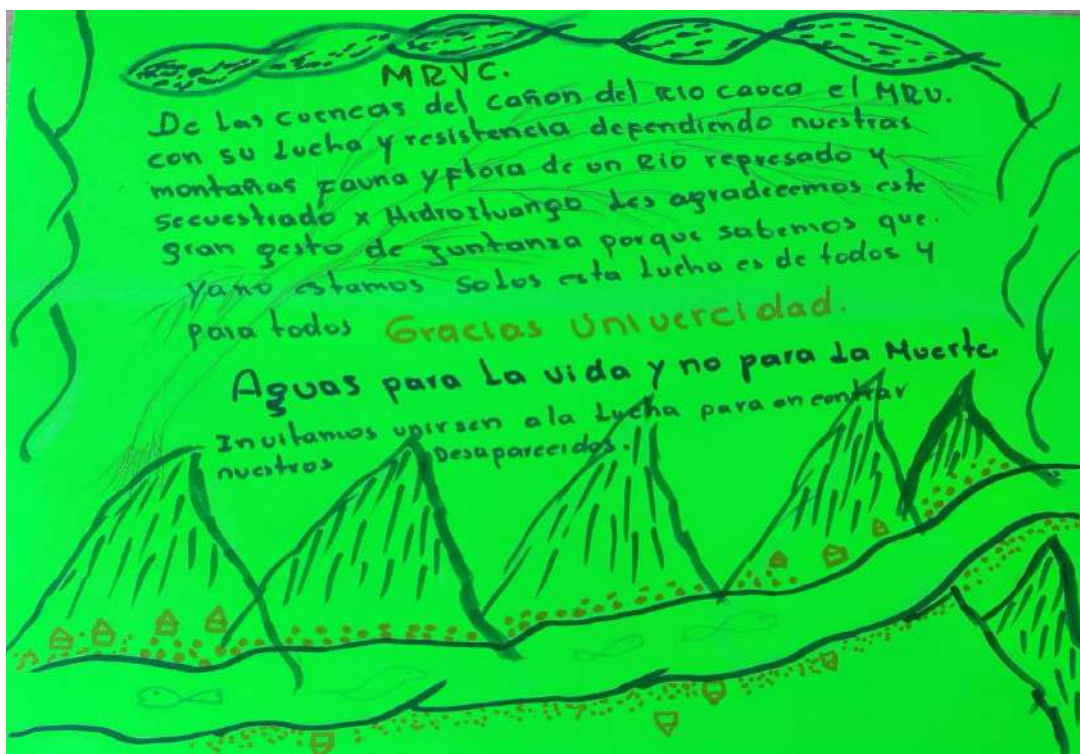 MRVC.
De Las cuencas del cañon del RIO cauca el MRV.
con su Lucha y resistencia dependiendo nuestras
montañas Fauna y Flora de un RIO represado y
secuestrado x Hidroituango Les agradecemos este
gran gesto de Juntanza porque sabemos que.
ya no estamos solos esta Lucha es de todos y
para todos Gracias Univercidad.
Aguas para La vida y no para La Muerte.
Invitamos unirsen a la Lucha para encontrar
nuestros Desaparecidos.